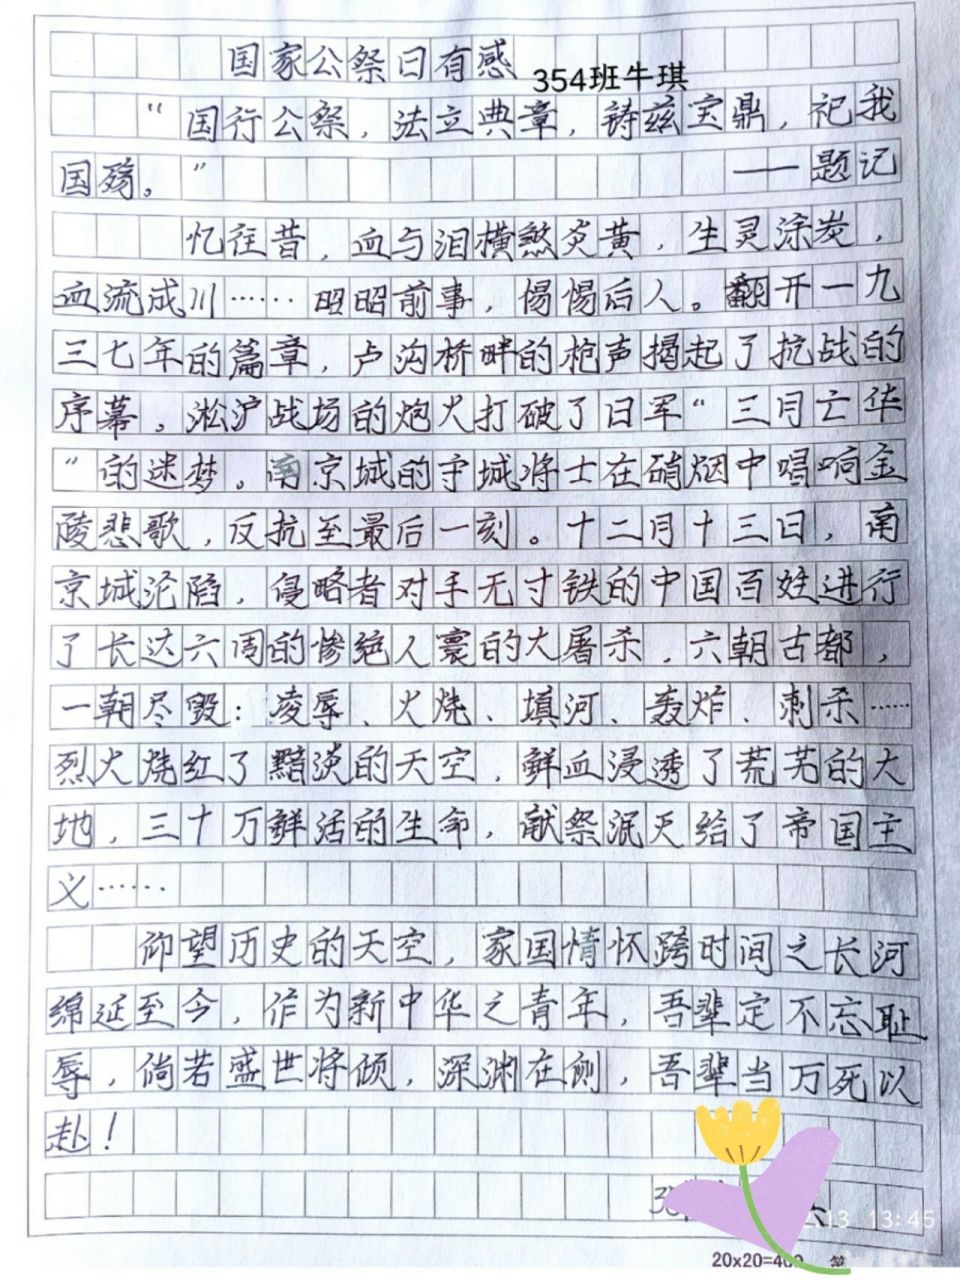 国家公祭日有感
354班牛琪
“国行公祭，法立典章，铸兹宝鼎，祀我
国殇。” ——题记
忆往昔，血与泪横煞炎黄，生灵涂炭，
血流成川……昭昭前事，惕惕后人。翻开一九
三七年的篇章，卢沟桥畔的枪声揭起了抗战的
序幕。淞沪战场的炮火打破了日军“三月亡华
”的迷梦。南京城的守城将士在硝烟中唱响金
陵悲歌，反抗至最后一刻。十二月十三日，南
京城沦陷，侵略者对手无寸铁的中国百姓进行
了长达六周的惨绝人寰的大屠杀，六朝古都，
一朝尽毁：凌辱、火烧、填河、轰炸、刺杀……
烈火烧红了黯淡的天空，鲜血浸透了荒芜的大
地，三十万鲜活的生命，献祭泯灭给了帝国主
义……
仰望历史的天空，家国情怀跨时间之长河
绵延至今，作为新中华之青年，吾辈定不忘耻
辱，倘若盛世将倾，深渊在侧，吾辈当万死以
赴！
13 13:45
20x20=400 第